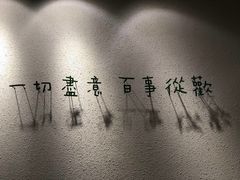 一切盡意 百事從歡